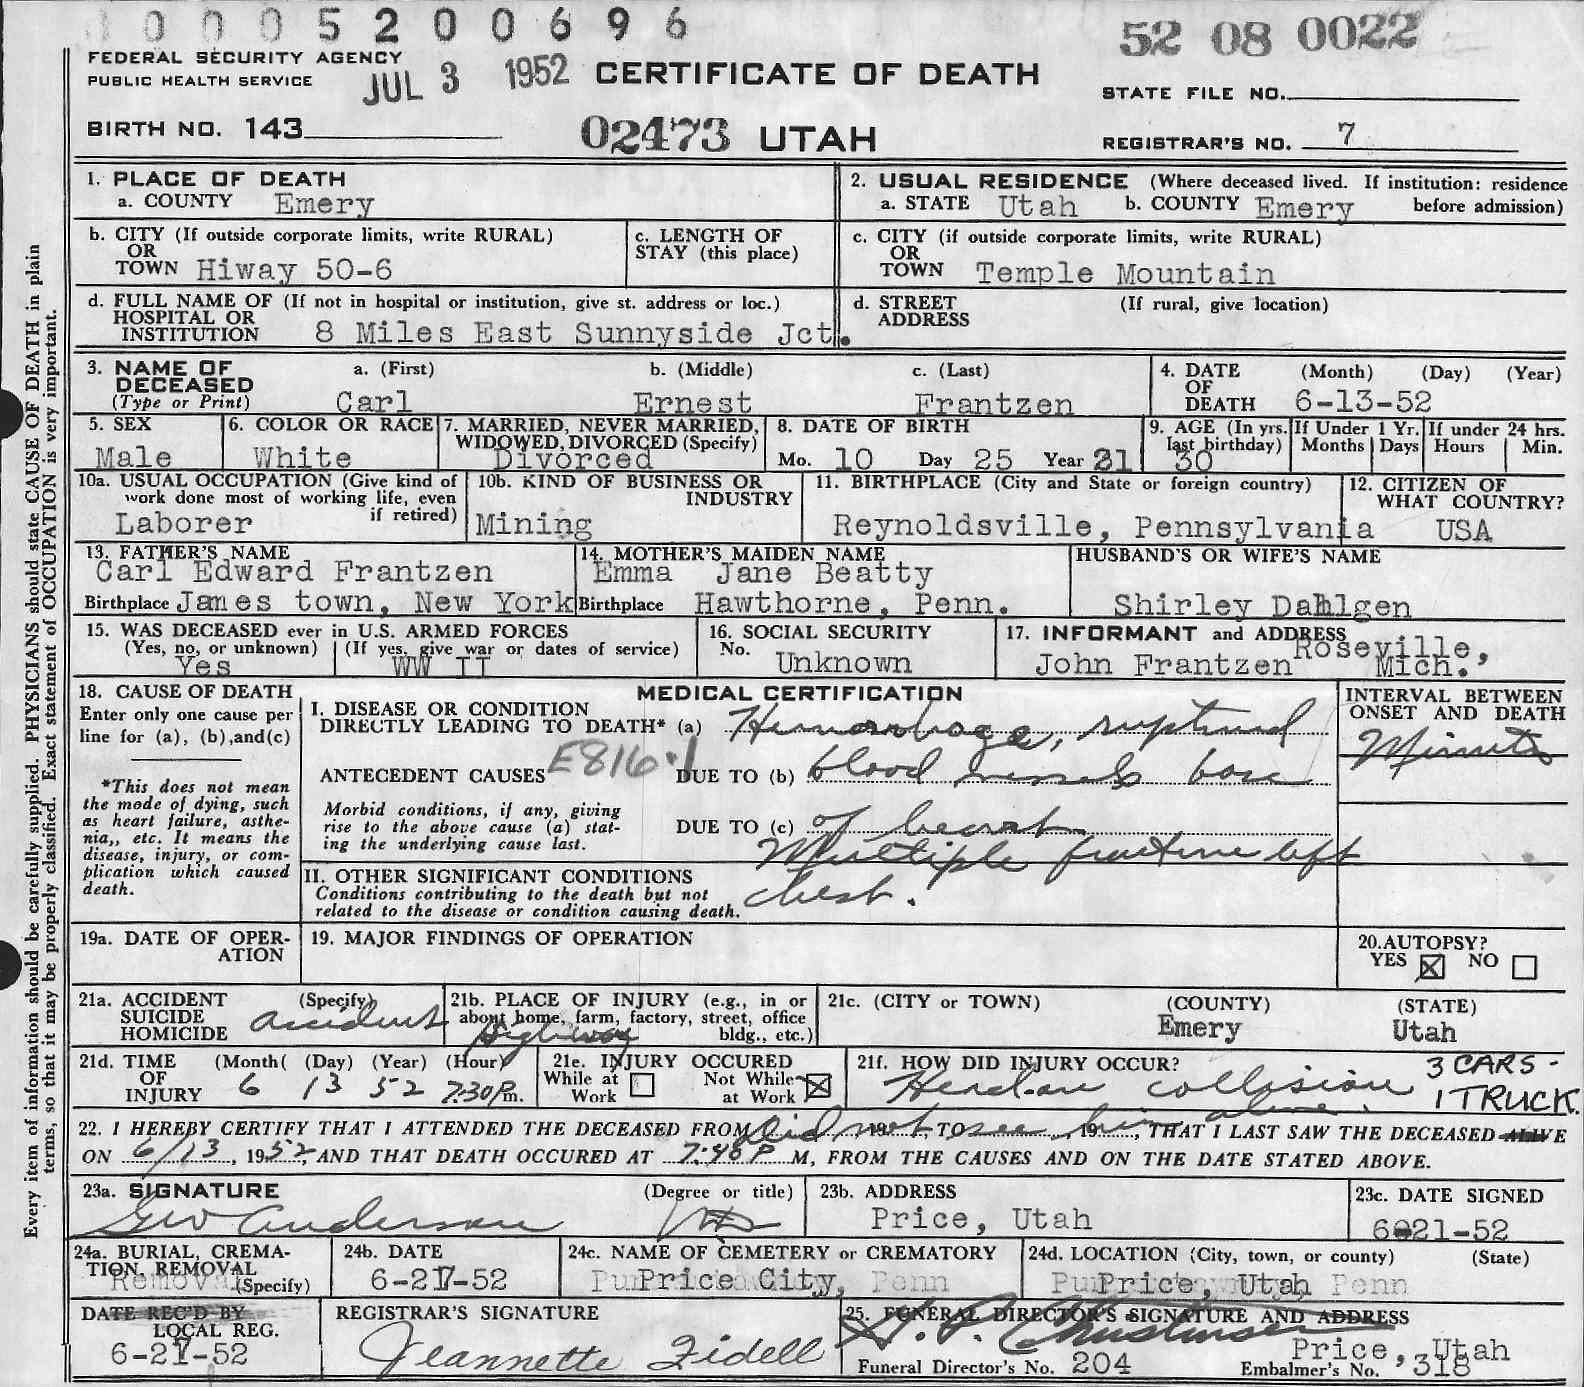 0005200696
52 08 0022
FEDERAL SECURITY AGENCY
PUBLIC HEALTH SERVICE
JUL 3 1952
CERTIFICATE OF DEATH
STATE FILE NO.
BIRTH NO. 143
02473 UTAH
REGISTRAR'S NO. 7
Every item of information should be carefully supplied. PHYSICIANS should state CAUSE OF DEATH in plain
terms, so that it may be properly classified. Exact statement of OCCUPATION is very important.
1. PLACE OF DEATH
a. COUNTY Emery
2. USUAL RESIDENCE (Where deceased lived. If institution: residence
a. STATE Utah b. COUNTY Emery before admission)
b. CITY (If outside corporate limits, write RURAL)
OR
TOWN Hiway 50-6
c. LENGTH OF
STAY (this place)
c. CITY (if outside corporate limits, write RURAL)
OR
TOWN Temple Mountain
d. FULL NAME OF (If not in hospital or institution, give st. address or loc.)
HOSPITAL OR
INSTITUTION 8 Miles East Sunnyside Jct.
d. STREET (If rural, give location)
ADDRESS
3. NAME OF a. (First) b. (Middle) c. (Last)
DECEASED
(Type or Print) Carl Ernest Frantzen
4. DATE (Month) (Day) (Year)
OF
DEATH 6-13-52
5. SEX
Male
6. COLOR OR RACE
White
7. MARRIED, NEVER MARRIED,
WIDOWED, DIVORCED (Specify)
Divorced
8. DATE OF BIRTH
Mo. 10 Day 25 Year 21
9. AGE (In yrs.
last birthday)
30
If Under 1 Yr.
Months Days
If under 24 hrs.
Hours Min.
10a. USUAL OCCUPATION (Give kind of
work done most of working life, even
if retired)
Laborer
10b. KIND OF BUSINESS OR
INDUSTRY
Mining
11. BIRTHPLACE (City and State or foreign country)
Reynoldsville, Pennsylvania
12. CITIZEN OF
WHAT COUNTRY?
USA
13. FATHER'S NAME
Carl Edward Frantzen
Birthplace James town, New York
14. MOTHER'S MAIDEN NAME
Emma Jane Beatty
Birthplace Hawthorne, Penn.
HUSBAND'S OR WIFE'S NAME
Shirley Dahlgen
15. WAS DECEASED ever in U.S. ARMED FORCES
(Yes, no, or unknown) (If yes, give war or dates of service)
Yes WW II
16. SOCIAL SECURITY
No. Unknown
17. INFORMANT and ADDRESS
John Frantzen Roseville,
Mich.
18. CAUSE OF DEATH
Enter only one cause per
line for (a), (b),and(c)
*This does not mean
the mode of dying, such
as heart failure, asthe-
nia,, etc. It means the
disease, injury, or com-
plication which caused
death.
MEDICAL CERTIFICATION
I. DISEASE OR CONDITION
DIRECTLY LEADING TO DEATH* (a) Hemorrhage, ruptured
ANTECEDENT CAUSES E816.1 DUE TO (b) blood vessels base
Morbid conditions, if any, giving
rise to the above cause (a) stat-
ing the underlying cause last.
DUE TO (c) of heart
Multiple fracture left
chest.
II. OTHER SIGNIFICANT CONDITIONS
Conditions contributing to the death but not
related to the disease or condition causing death.
INTERVAL BETWEEN
ONSET AND DEATH
Minutes
19a. DATE OF OPER-
ATION
19. MAJOR FINDINGS OF OPERATION
20.AUTOPSY?
YES ☒ NO ☐
21a. ACCIDENT (Specify)
SUICIDE
HOMICIDE accident
21b. PLACE OF INJURY (e.g., in or
about home, farm, factory, street, office
bldg., etc.)
Highway
21c. (CITY or TOWN) (COUNTY) (STATE)
Emery Utah
21d. TIME (Month( (Day) (Year) (Hour)
OF
INJURY 6 13 52 7:30 P.m.
21e. INJURY OCCURED
While at ☐ Not While ☒
Work at Work
21f. HOW DID INJURY OCCUR?
Headon collision 3 CARS-
1 TRUCK.
22. I HEREBY CERTIFY THAT I ATTENDED THE DECEASED FROM Did not, 19, TO see him alive, 19, THAT I LAST SAW THE DECEASED ALIVE
ON 6/13, 1952, AND THAT DEATH OCCURED AT 7:40 P M, FROM THE CAUSES AND ON THE DATE STATED ABOVE.
23a. SIGNATURE (Degree or title)
Geo Anderson MD
23b. ADDRESS
Price, Utah
23c. DATE SIGNED
6-21-52
24a. BURIAL, CREMA-
TION, REMOVAL
Removal (Specify)
24b. DATE
6-27-52
24c. NAME OF CEMETERY or CREMATORY
Price City, Penn
24d. LOCATION (City, town, or county) (State)
Price, Utah Penn
DATE REC'D BY
LOCAL REG.
6-27-52
REGISTRAR'S SIGNATURE
Jeannette Fidell
25. FUNERAL DIRECTOR'S SIGNATURE AND ADDRESS
Price, Utah
Funeral Director's No. 204 Embalmer's No. 318